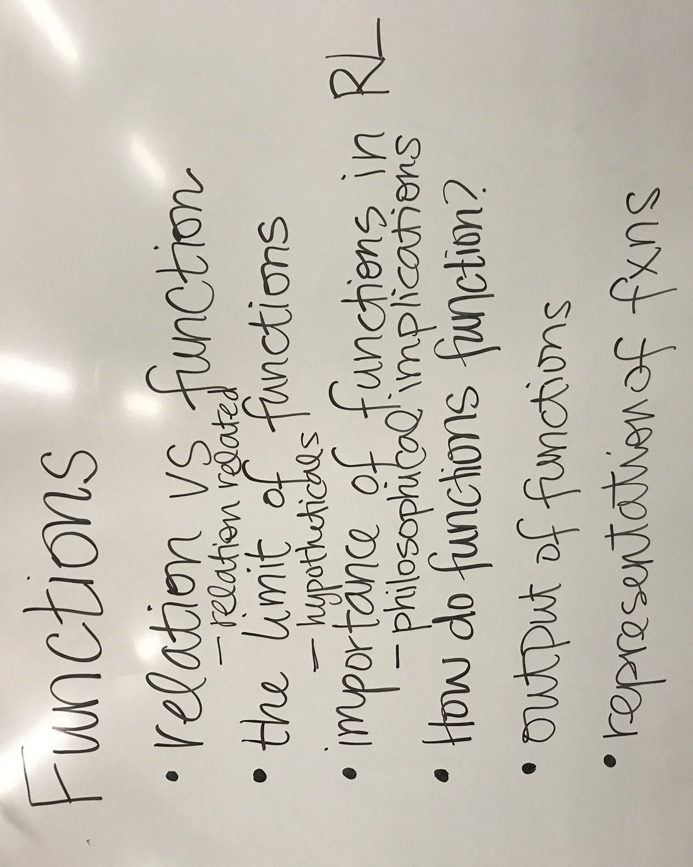 Functions
• relation vs function
– relation related
• the limit of functions
– hypotheticals
• importance of functions in RL
– philosophical implications
• How do functions function?
• output of functions
• representation of fxns